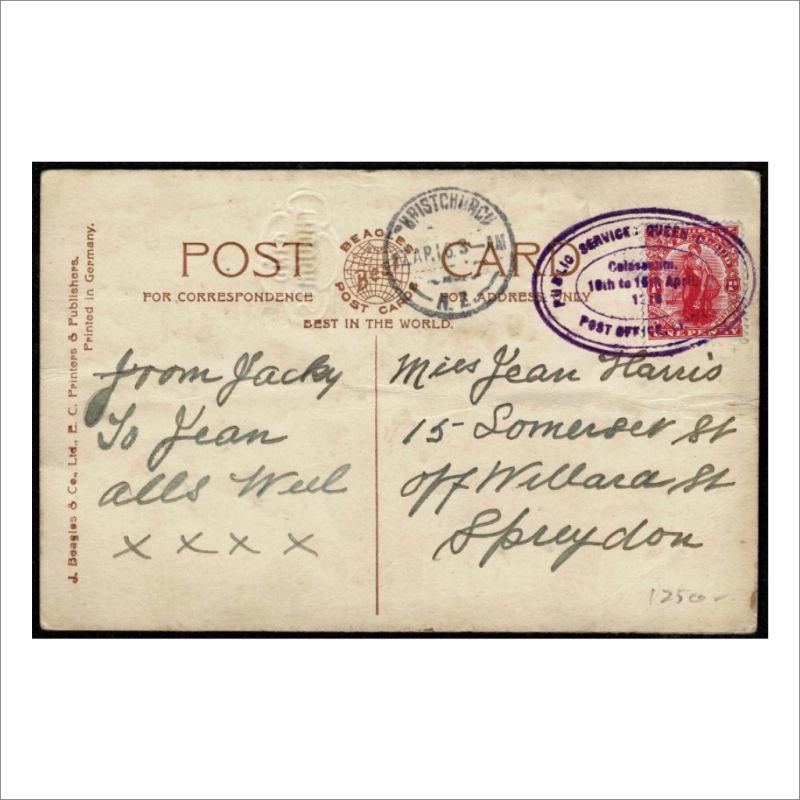 J. Beagles & Co., Ltd., E. C. Printers & Publishers.
Printed in Germany.
POST CARD
BEAGLES
POST CARDS
Best
FOR CORRESPONDENCE
FOR ADDRESS ONLY
BEST IN THE WORLD.
CHRISTCHURCH
AP.16
AM
N.Z.
PUBLIC SERVICE: QUEEN
Colosseum.
to 15th April
POST OFFICE
ONE PENNY
From Jacky
To Jean
alls Well
x x x x
Miss Jean Harris
15 Somerset St
off Willard St
Spreydon